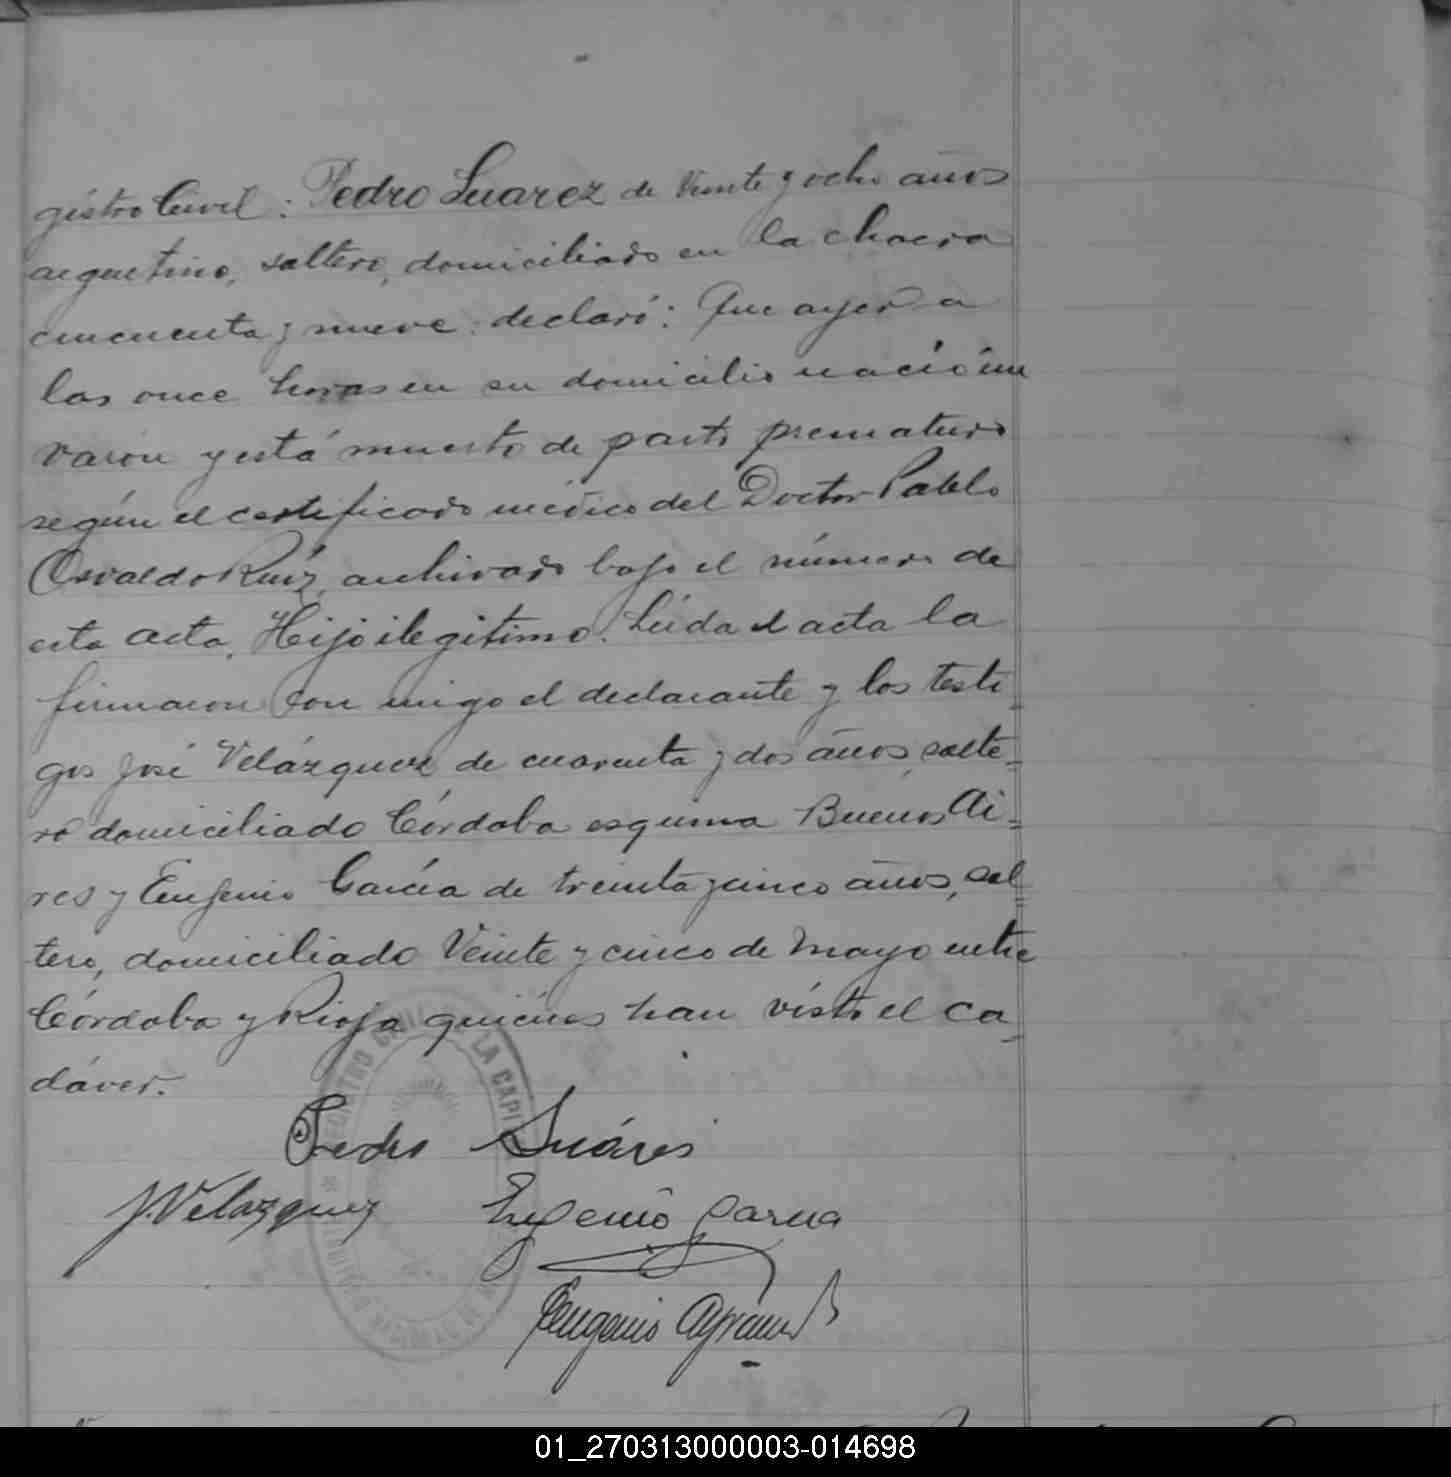 gistro Civil: Pedro Suarez de Veinte y ocho años
argentino, soltero, domiciliado en la chacra
cincuenta y nueve declaró: Que ayer a
las once horas en su domicilio nació un
varón y está muerto de parto prematuro
según el certificado médico del Doctor Pablo
Osvaldo Ruiz, archivado bajo el número de
esta acta. Hijo ilegitimo. Leída el acta la
firmaron con migo el declarante y los testi
gos José Velázquez de cuarenta y dos años, solte=
ro domiciliado Córdoba esquina Buenos Ai=
res y Eugenio García de treinta y cinco años, sol=
tero, domiciliado Veinte y cinco de Mayo entre
Córdoba y Rioja quiénes han visto el ca_
dáver.
REGISTRO CIVIL LA CAPI
Pedro Suáres
J. Velazquez Eugenio Garcia
Eugenio
01_270313000003-014698